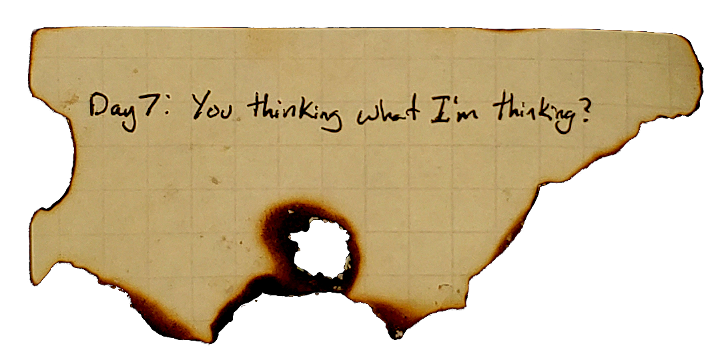 Day 7: You thinking what I'm thinking?